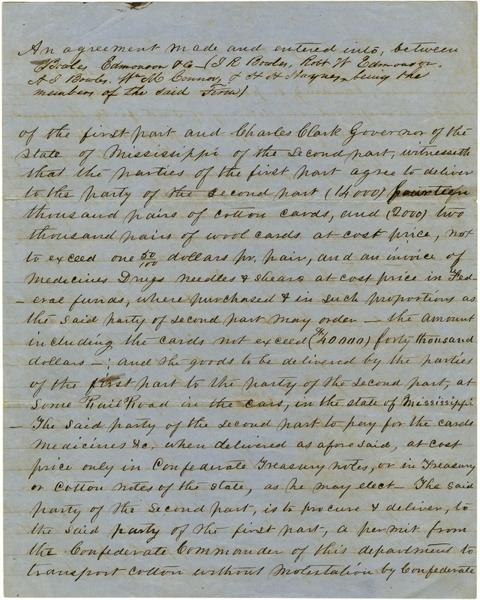 An agreement made and entered into, between
Bowles Edmonson & Co — (J R Bowles, Robt W Edmonson
A J Bowles, Wm M Connoy, & H H Haynes being the
members of the said Firm)
of the first part and Charles Clark Governor of the
State of Mississippi of the second part, witnesseth
that the parties of the first part agree to deliver
to the party of the second part (14000) fourteen
thousand pairs of cotton cards, and (2000) two
thousand pairs of wool cards at cost price, not
to exceed one 50/100 dollars pr. pair, and an invoice of
Medicines Drugs needles & shears at cost price in Fed-
-eral funds, where purchased & in such proportions as
the said party of second part may order — the amount
including the cards not exceed ($40000) forty thousand
dollars —; and the goods to be delivered by the parties
of the first part to the party of the second part, at
some Rail Road in the cars, in the state of Mississippi
— The said party of the second part to pay for the cards
Medicines &c. when delivered as afore said, at cost
price only in Confederate Treasury notes, or in Treasury
or Cotton notes of the State, as he may elect — The said
party of the second part, is to procure & deliver, to
the said party of the first part, a permit from
the Confederate Commander of this department to
transport cotton without molestation by Confederate